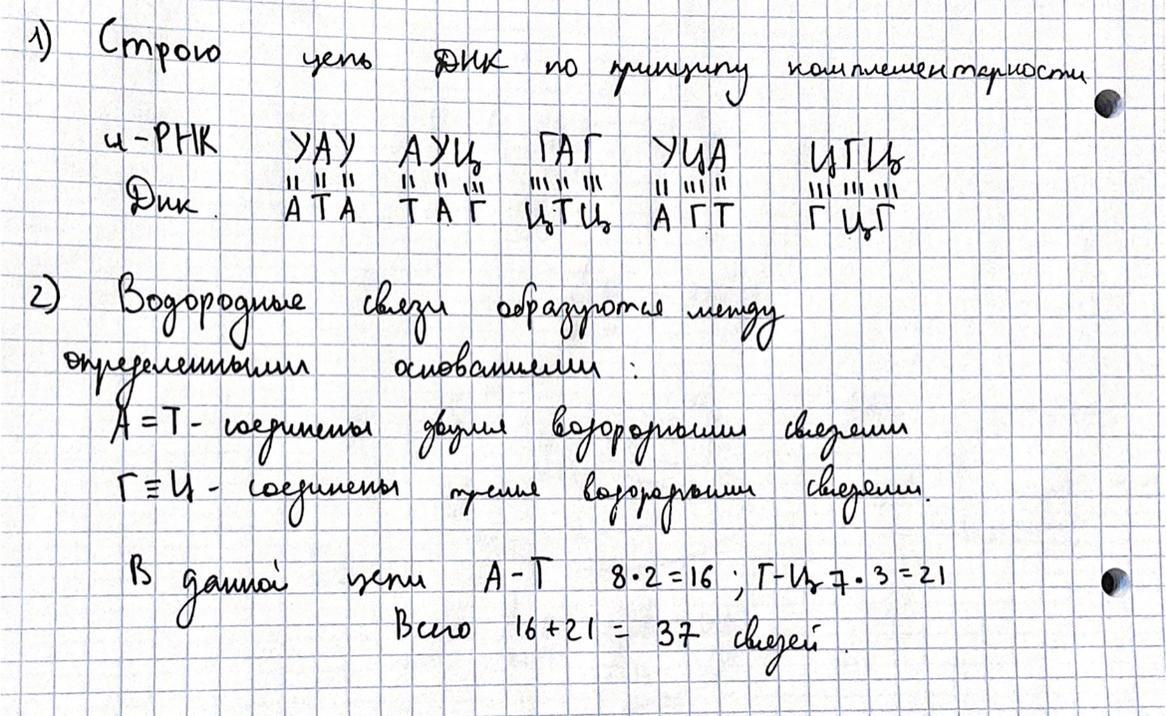 1) Строю цепь ДНК по принципу комплементарности
и-РНК УАУ АУЦ ГАГ УЦА ЦГЦ
Днк. АТА ТАГ ЦТЦ АГТ ГЦГ
2) Водородные связи образуются между
определенными основаниями :
А=Т- соединены двумя водородными связями
Г≡Ц - соединены тремя водородными связями.
В данной цепи А-Т 8·2=16 ; Г-Ц 7·3=21
Всего 16+21 = 37 связей.